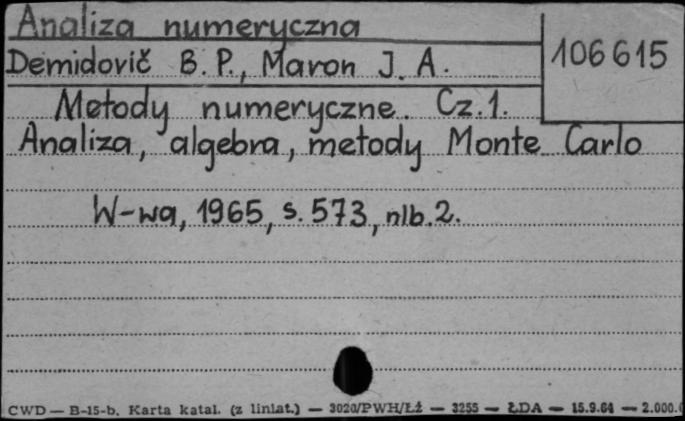 Analiza numeryczna
Demidovič B. P., Maron J. A.
106615
Metody numeryczne. Cz. 1.
Analiza, algebra, metody Monte Carlo
W-wa, 1965, s. 573, nlb. 2.
CWD — B-15-b. Karta katal. (z liniat.) — 3020/PWH/Łź — 3255 — ŁDA — 15.9.64 — 2.000.